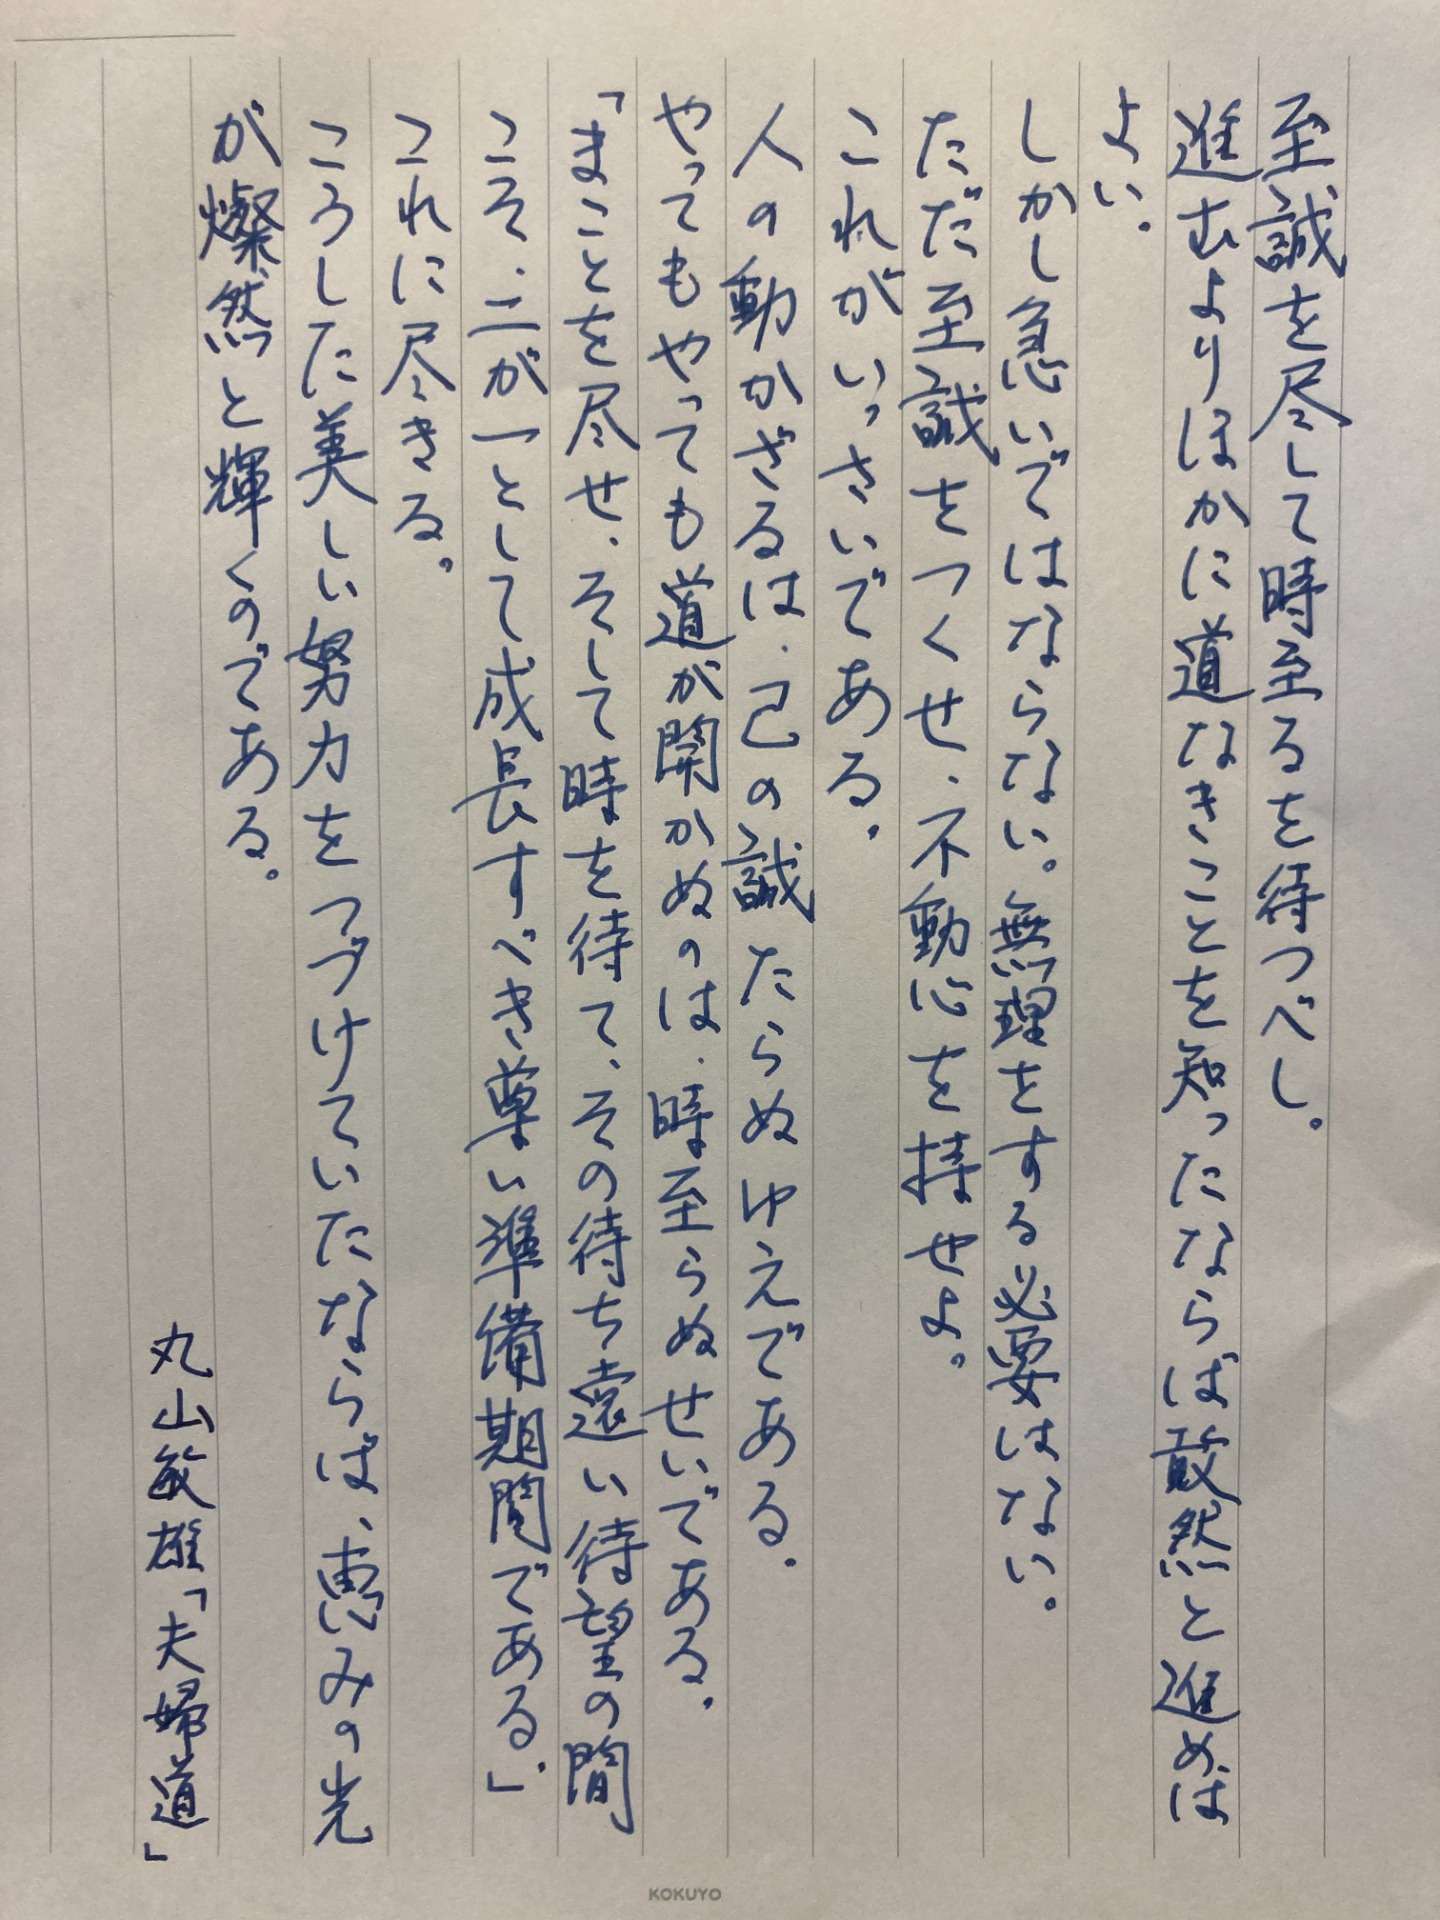 至誠を尽して時至るを待つべし。
進むよりほかに道なきことを知ったならば敢然と進めば
よい。
しかし急いではならない。無理をする必要はない。
ただ至誠をつくせ、不動心を持せよ。
これがいっさいである。
人の動かざるは、己の誠たらぬゆえである。
やってもやっても道が開かぬのは、時至らぬせいである。
「まことを尽せ、そして時を待て、その待ち遠い待望の間
こそ、二が一として成長すべき尊い準備期間である。」
これに尽きる。
こうした美しい努力をつづけていたならば、恵みの光
が燦然と輝くのである。
丸山敏雄「夫婦道」
KOKUYO